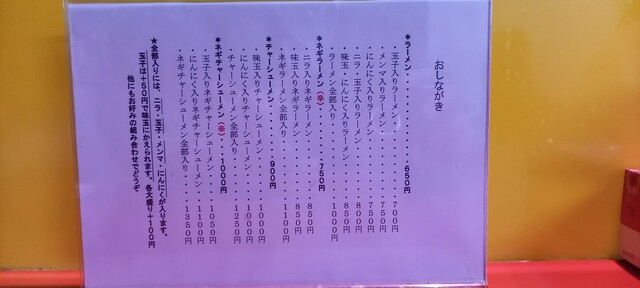 おしながき
*ラーメン・・・・・・・・・650円
・玉子入りラーメン・・・・・・・・700円
・メンマ入りラーメン・・・・・・・750円
・にんにく入りラーメン・・・・・・750円
・ニラ・玉子入りラーメン・・・・・800円
・味玉・にんにく入りラーメン・・・850円
・ラーメン全部入り・・・・・・・・1000円
*ネギラーメン(辛)・・・・・750円
・ニラ入りネギラーメン・・・・・・850円
・味玉入りネギラーメン・・・・・・850円
・ネギラーメン全部入り・・・・・・1100円
*チャーシューメン・・・・・・900円
・味玉入りチャーシューメン・・・・1000円
・にんにく入りチャーシューメン・・1000円
・チャーシューメン全部入り・・・・1250円
*ネギチャーシューメン(辛)・・1000円
・玉子入りネギチャーシューメン・・・1050円
・にんにく入りネギチャーシューメン・1100円
・ネギチャーシューメン全部入り・・・1350円
★全部入りには、ニラ・玉子・メンマ・にんにくが入ります。
玉子は+50円で味玉にかえられます。各大盛り+100円
他にもお好みの組み合わせでどうぞ